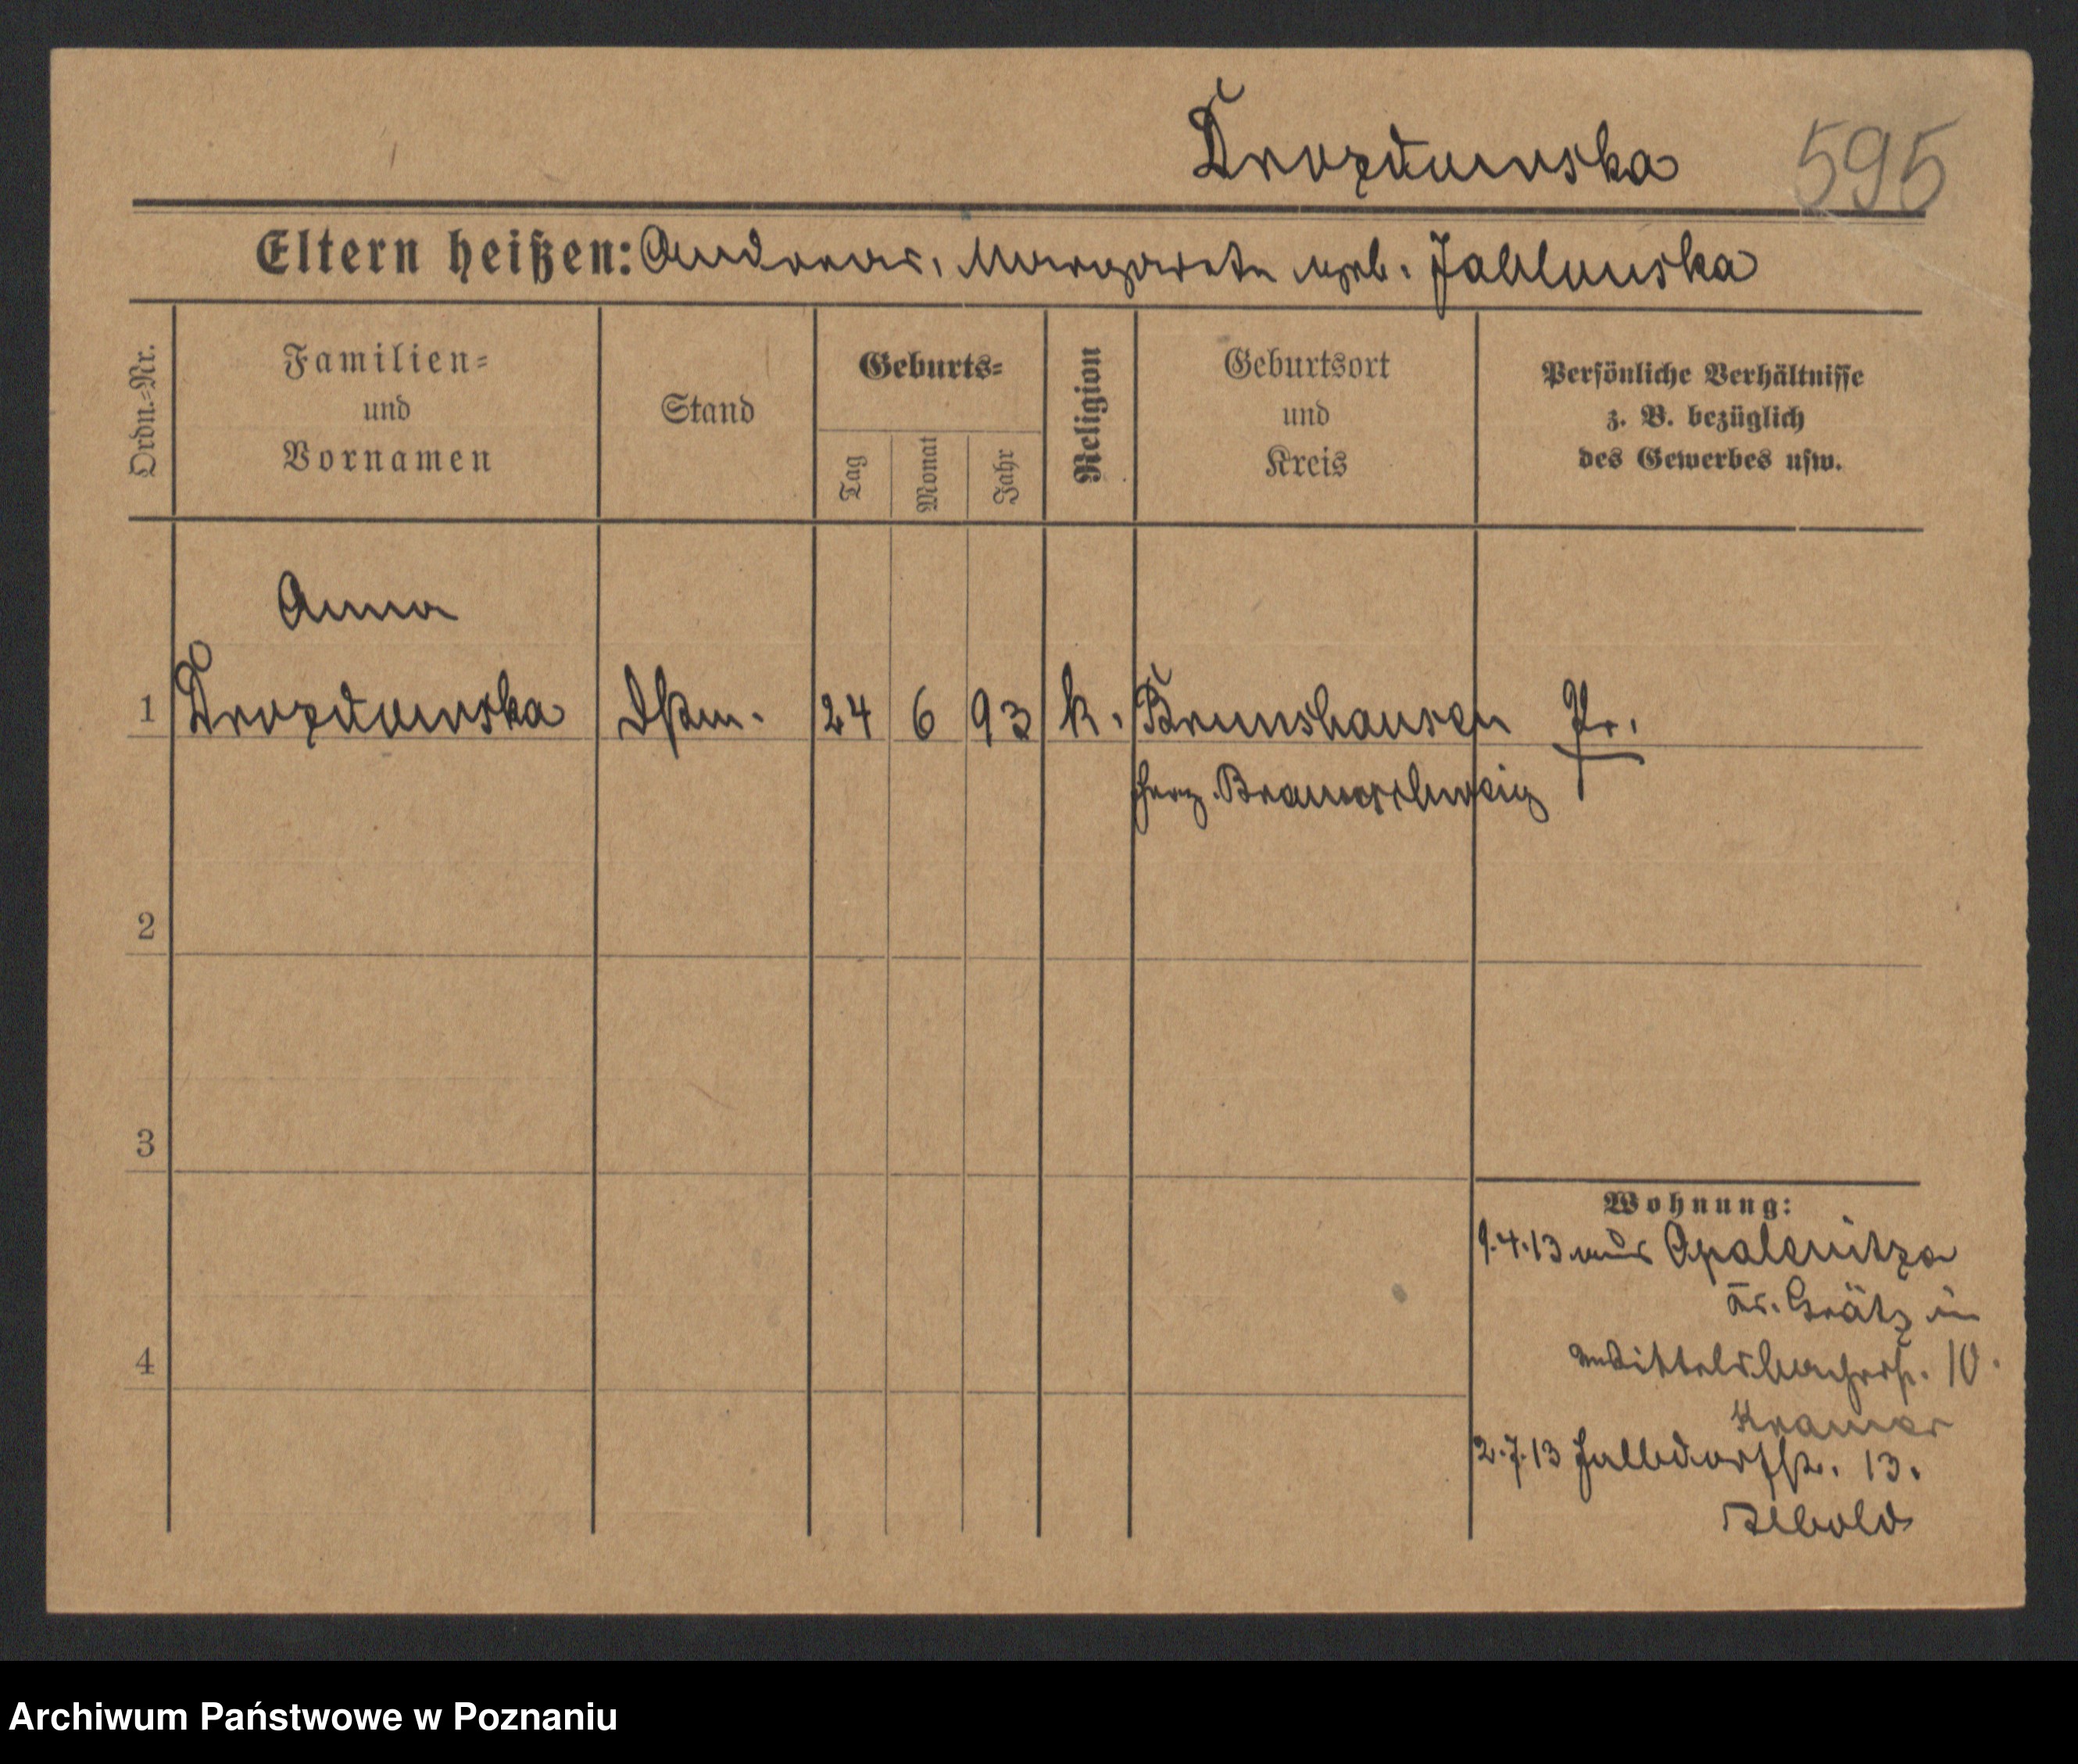 Drozdowska 595
Eltern heißen: Andreas, Margarete geb. Jablonska
Ordn.-Nr.
Familien-
und
Vornamen
Stand
Geburts-
Tag
Monat
Jahr
Religion
Geburtsort
und
Kreis
Persönliche Verhältnisse
z. B. bezüglich
des Gewerbes usw.
Anna
1 Drozdowska 24 6 93 k. Brunshausen Pr.
Herz. Braunschweig
2
3
4
Wohnung:
9.4.13 aus Opalenitza
Kr. Grätz in
Wittelsbacherst. 10.
Kramer
2.7.13 13.
Sebold
Archiwum Państwowe w Poznaniu